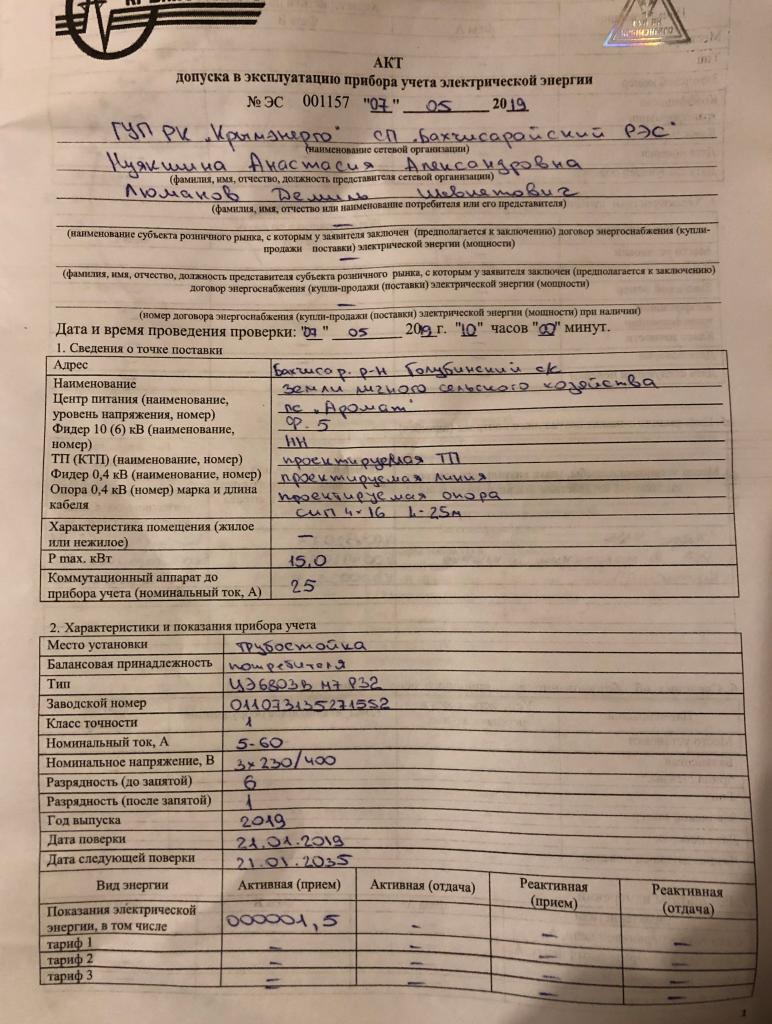 АКТ
допуска в эксплуатацию прибора учета электрической энергии
№ ЭС 001157 "07" 05 2019
ГУП РК „Крымэнерго" СП „Бахчисарайский РЭС"
(наименование сетевой организации)
Анастасия Александровна
(фамилия, имя, отчество, должность представителя сетевой организации)
Люманов Шевкетович
(фамилия, имя, отчество или наименование потребителя или его представителя)
–
(наименование субъекта розничного рынка, с которым у заявителя заключен (предполагается к заключению) договор энергоснабжения (купли-
продажи поставки) электрической энергии (мощности)
–
(фамилия, имя, отчество, должность представителя субъекта розничного рынка, с которым у заявителя заключен (предполагается к заключению)
договор энергоснабжения (купли-продажи (поставки) электрической энергии (мощности)
–
(номер договора энергоснабжения (купли-продажи (поставки) электрической энергии (мощности) при наличии)
Дата и время проведения проверки: "07" 05 2019 г. "10" часов "00" минут.
1. Сведения о точке поставки
Адрес Бахчисар. р-н Голубинский с/с
Наименование земли личного сельского хозяйства
Центр питания (наименование,
уровень напряжения, номер) ПС „Аромат"
Фидер 10 (6) кВ (наименование, Ф. 5
номер) НН
ТП (КТП) (наименование, номер) проектируемая ТП
Фидер 0,4 кВ (наименование, номер) проектируемая линия
Опора 0,4 кВ (номер) марка и длина проектируемая опора
кабеля СИП 4×16 L-25м
Характеристика помещения (жилое
или нежилое) –
P max. кВт 15,0
Коммутационный аппарат до
прибора учета (номинальный ток, А) 25
2. Характеристики и показания прибора учета
Место установки трубостойка
Балансовая принадлежность потребителя
Тип ЦЭ6803В М7 Р32
Заводской номер 011073135271552
Класс точности 1
Номинальный ток, А 5-60
Номинальное напряжение, В 3×230/400
Разрядность (до запятой) 6
Разрядность (после запятой) 1
Год выпуска 2019
Дата поверки 21.01.2019
Дата следующей поверки 21.01.2035
Вид энергии Активная (прием) Активная (отдача) Реактивная (прием) Реактивная (отдача)
Показания электрической
энергии, в том числе 000001,5 – – –
тариф 1 – – – –
тариф 2 – – – –
тариф 3 – – – –
1